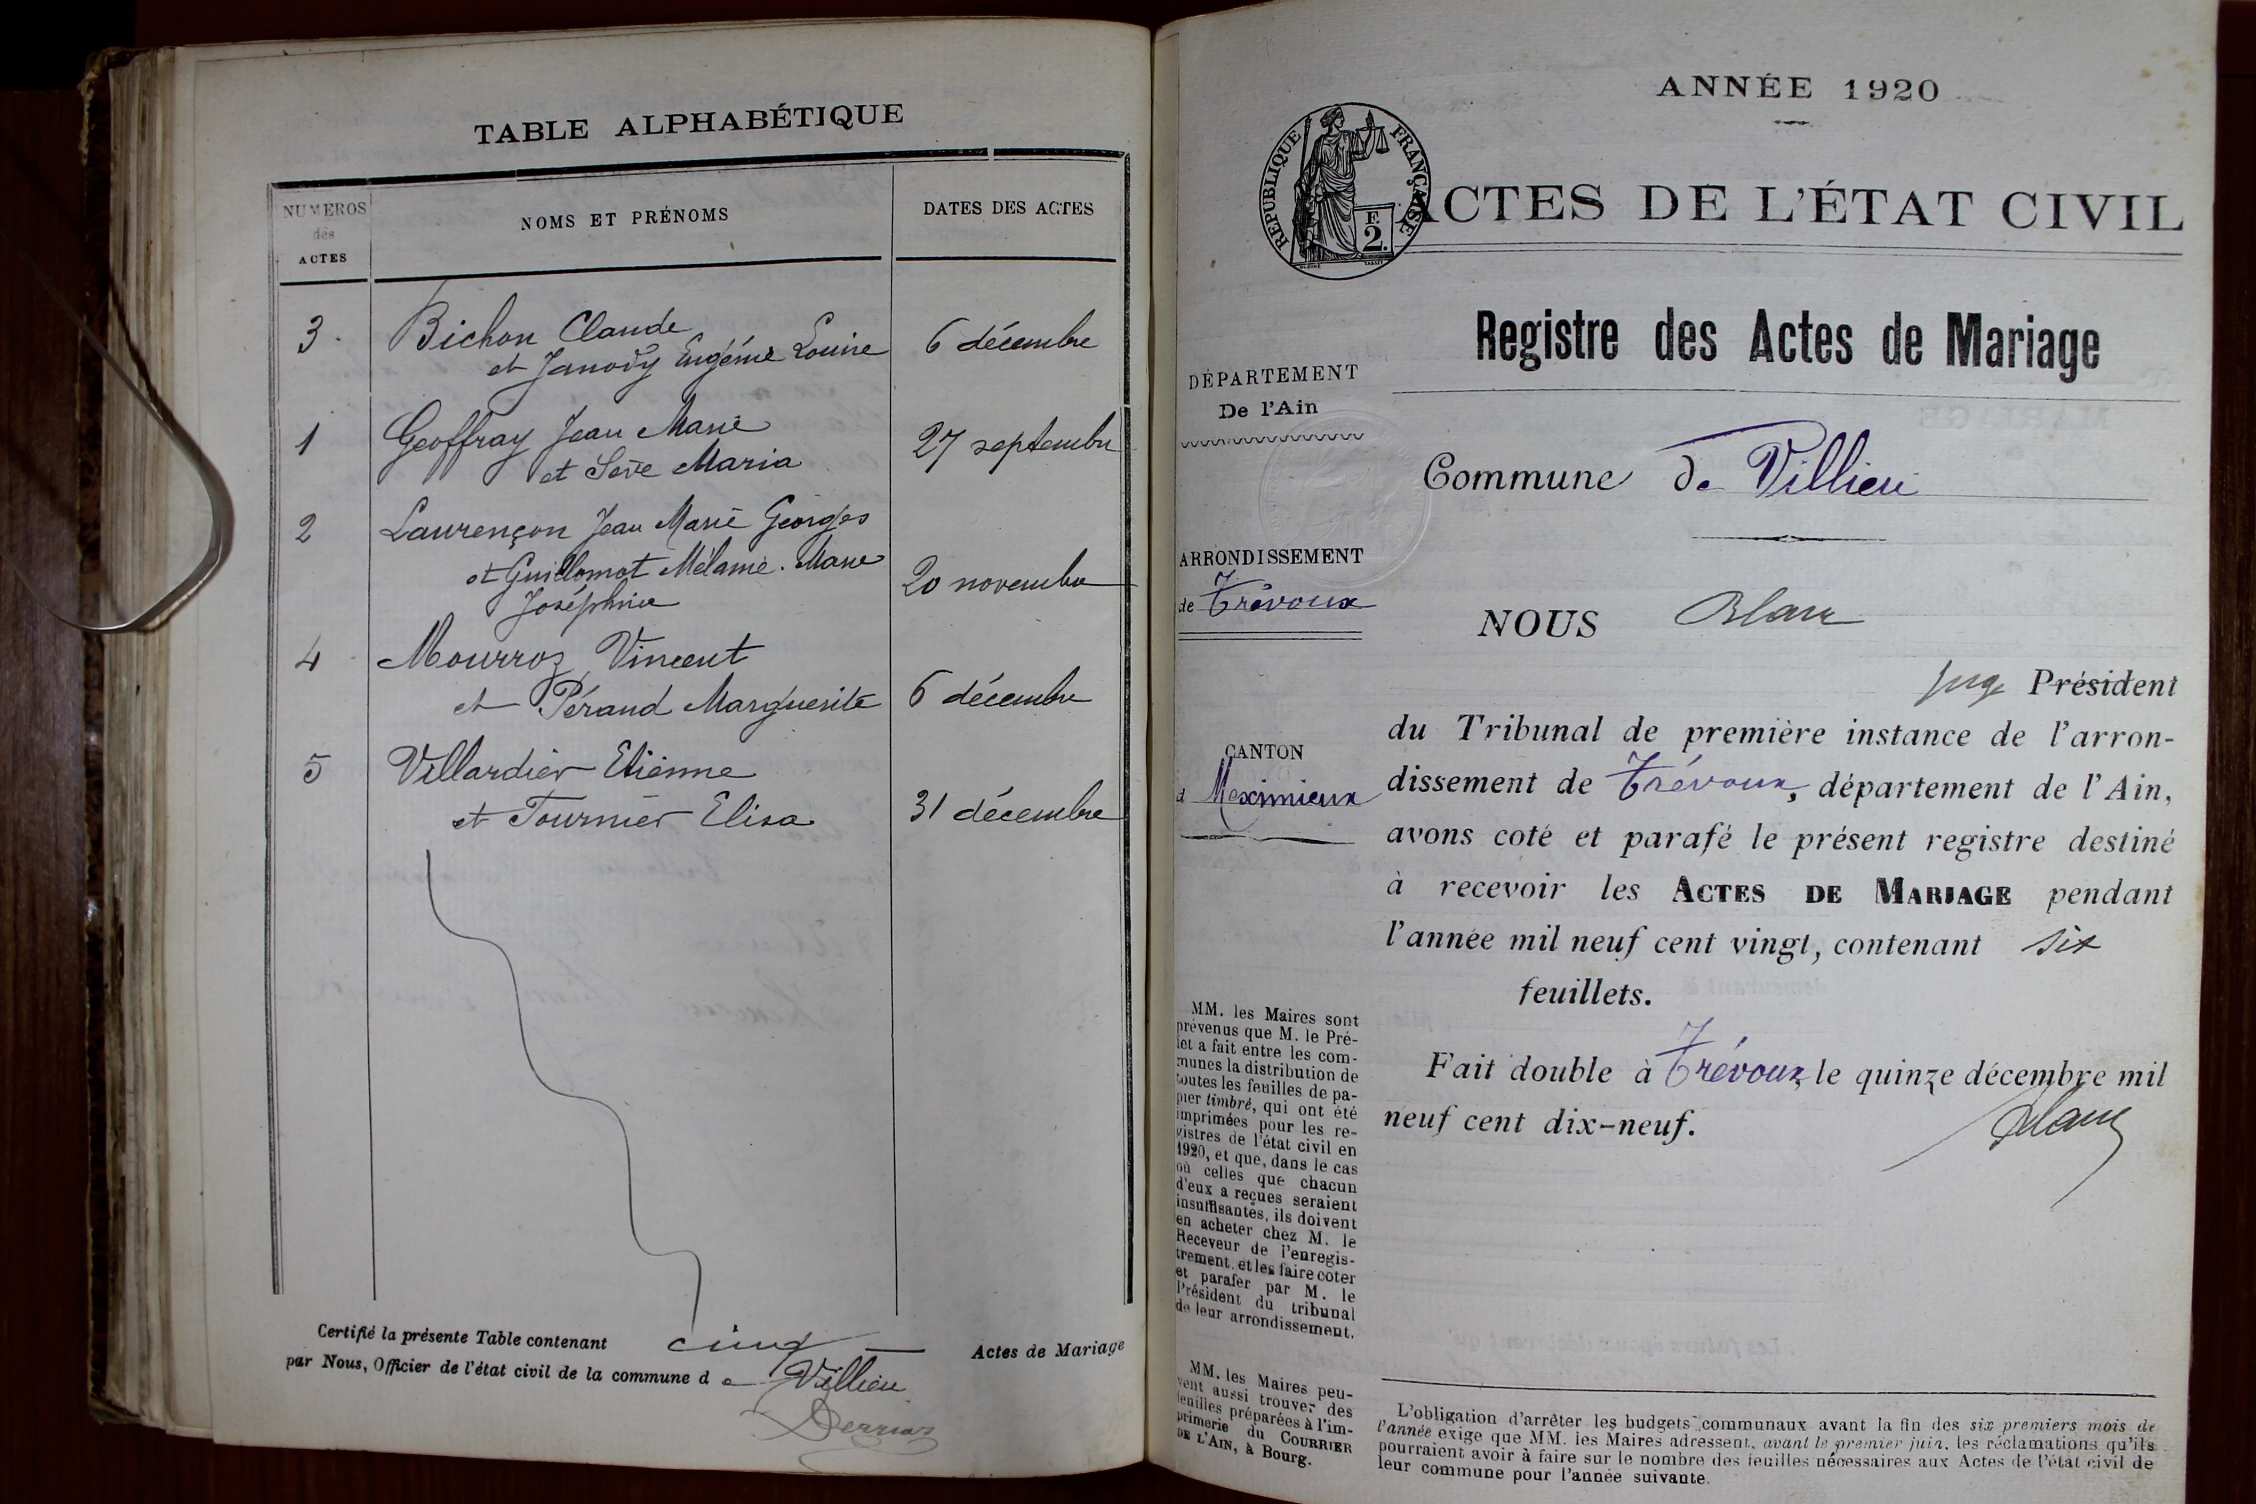 TABLE ALPHABÉTIQUE
NUMÉROS
des
ACTES
NOMS ET PRÉNOMS
DATES DES ACTES
3
Bichon Claude
et Janody Eugénie Louise
6 décembre
1
Geoffray Jean Marie
et Sève Maria
27 septembre
2
Laurençon Jean Marie Georges
et Guillomot Mélanie. Marie
Joséphine
20 novembre
4
Mourroz Vincent
et Péraud Marguerite
6 décembre
5
Villardier Etienne
et Tournier Elisa
31 décembre
Certifié la présente Table contenant cinq Actes de Mariage
par Nous, Officier de l'état civil de la commune de Villieu
ANNÉE 1920
RÉPUBLIQUE FRANÇAISE
F.
2.
ACTES DE L'ÉTAT CIVIL
Registre des Actes de Mariage
DÉPARTEMENT
De l'Ain
Commune de Villieu
ARRONDISSEMENT
de Trévoux
NOUS Blanc
Juge Président
du Tribunal de première instance de l'arron-
dissement de Trévoux, département de l'Ain,
avons coté et parafé le présent registre destiné
à recevoir les ACTES DE MARIAGE pendant
l'année mil neuf cent vingt, contenant six
feuillets.
Fait double à Trévoux, le quinze décembre mil
neuf cent dix-neuf.
Blanc
CANTON
d Meximieux
MM. les Maires sont
prévenus que M. le Pré-
fet a fait entre les com-
munes la distribution de
toutes les feuilles de pa-
pier timbré, qui ont été
imprimées pour les re-
gistres de l'état civil en
1920, et que, dans le cas
où celles que chacun
d'eux a reçues seraient
insuffisantes, ils doivent
en acheter chez M. le
Receveur de l'enregis-
trement, et les faire coter
et parafer par M. le
Président du tribunal
de leur arrondissement.
MM. les Maires peu-
vent aussi trouver des
feuilles préparées à l'im-
primerie du COURRIER
DE L'AIN, à Bourg.
L'obligation d'arrêter les budgets communaux avant la fin des six premiers mois de
l'année exige que MM. les Maires adressent, avant le premier juin, les réclamations qu'ils
pourraient avoir à faire sur le nombre des feuilles nécessaires aux Actes de l'état civil de
leur commune pour l'année suivante.